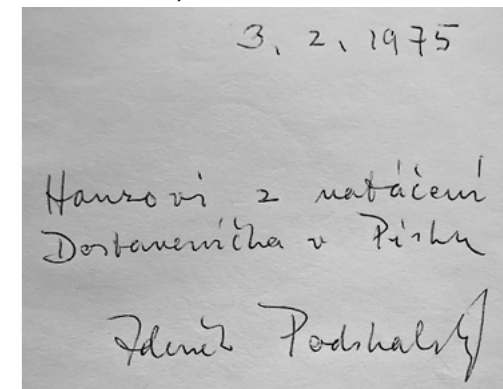 3. 2. 1975
Hanzovi z natáčení
Dostaveníčka v Písku
Zdeněk Podskalský